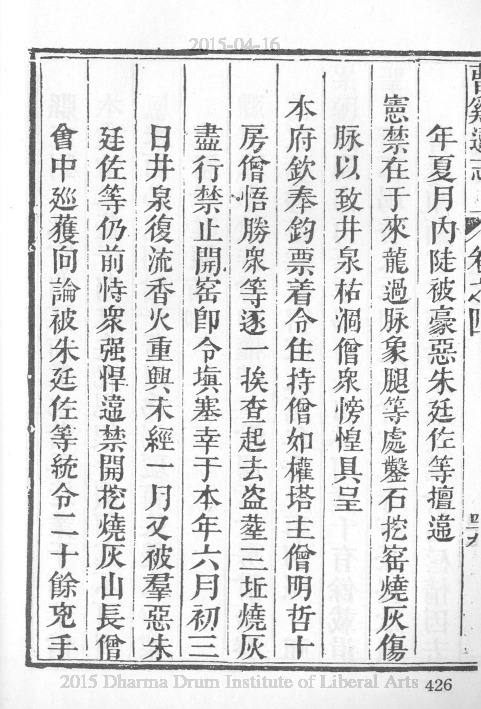 2015-04-16
年夏月內陡被豪惡朱廷佐等擅違
憲禁在于來龍過脉象腿等處鑿石挖窑燒灰傷
脉以致井泉枯涸僧衆傍惶具呈
本府欽奉鈞票着令住持僧如權塔主僧明哲十
房僧悟勝衆等逐一挨查起去盗塟三坵燒灰
盡行禁止開窑卽令塡塞幸于本年六月初三
日井泉復流香火重興未經一月又被羣惡朱
廷佐等仍前恃衆强悍違禁開挖燒灰山長僧
會中廵獲向論被朱廷佐等統令二十餘兇手
2015 Dharma Drum Institute of Liberal Arts
426